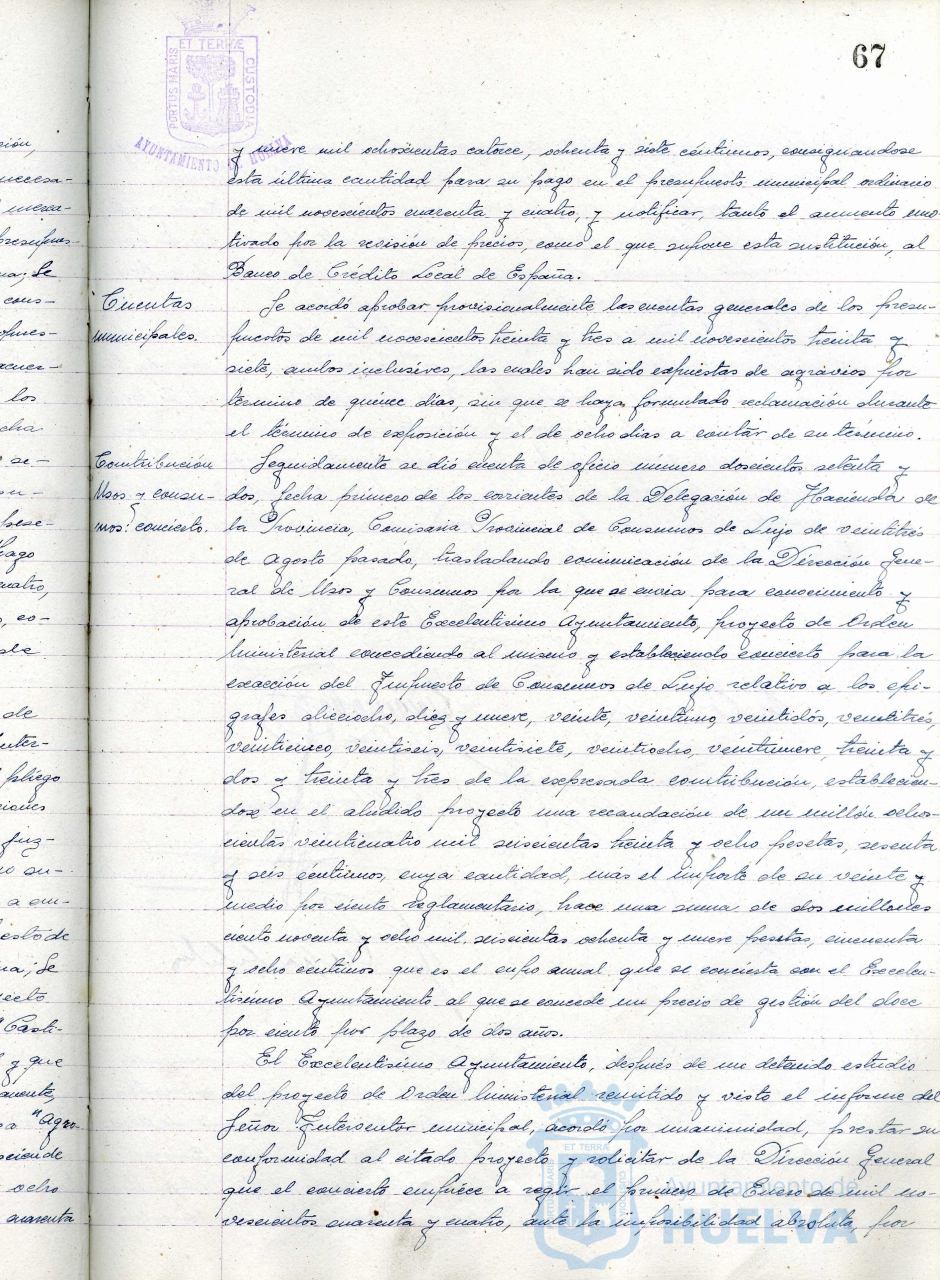 67
ET TERRÆ
PORTUS MARIS
CUSTODIA
AYUNTAMIENTO DE HUELVA
y nueve mil ochoscientas catorce, ochenta y siete céntimos, consignandose
esta última cantidad para su pago en el presupuesto municipal ordinario
de mil novescientos cuarenta y cuatro, y notificar, tanto el aumento mo-
tivado por la revisión de precios, como el que supone esta sustitución, al
Banco de Crédito Local de España.
Cuentas
municipales.
Se acordó aprobar provisionalmente las cuentas generales de los presu-
puestos de mil novescientos treinta y tres a mil novescientos treinta y
siete, ambos inclusives, las cuales han sido expuestas de agravios por
término de quince días, sin que se haya formulado reclamación durante
el término de exposición y el de ocho días a contar de su término.
Contribución
Usos y consu-
mos: concierto.
Seguidamente se dió cuenta de oficio número doscientos setenta y
dos, fecha primero de los corrientes de la Delegación de Hacienda de
la Provincia, Comisaria Provincial de Consumos de Lujo de veintitrés
de Agosto pasado, trasladando comunicación de la Dirección Gene-
ral de Usos y Consumos por la que se envia para conocimiento y
aprobación de este Excelentísimo Ayuntamiento, proyecto de Orden
Ministerial concediendo al mismo y estableciendo concierto para la
exacción del Impuesto de Consumos de Lujo relativo a los epí-
grafes dieciocho, diez y nueve, veinte, veintiuno, veintidós, veintitrés,
veinticinco, veintiseis, veintisiete, veintiocho, veintinueve, treinta y
dos y treinta y tres de la expresada contribución, establecien-
dose en el aludido proyecto una recaudación de un millón ochos-
cientas veinticuatro mil seiscientas treinta y ocho pesetas, sesenta
y seis céntimos, cuya cantidad, más el importe de su veinte y
medio por ciento reglamentario, hace una suma de dos millones
ciento noventa y ocho mil seiscientas ochenta y nueve pesetas, cincuenta
y ocho céntimos que es el cupo anual que se concierta con el Excelen-
tísimo Ayuntamiento al que se concede un precio de gestión del doce
por ciento por plazo de dos años.
El Excelentísimo Ayuntamiento, después de un detenido estudio
del proyecto de Orden Ministerial remitido y visto el informe del
Señor Interventor municipal, acordó por unanimidad, prestar su
conformidad al citado proyecto y solicitar de la Dirección General
que el concierto empiece a regir el primero de Enero de mil no-
vescientos cuarenta y cuatro, ante la imposibilidad absoluta, por
ET TERRA
Ayuntamiento de
HUELVA